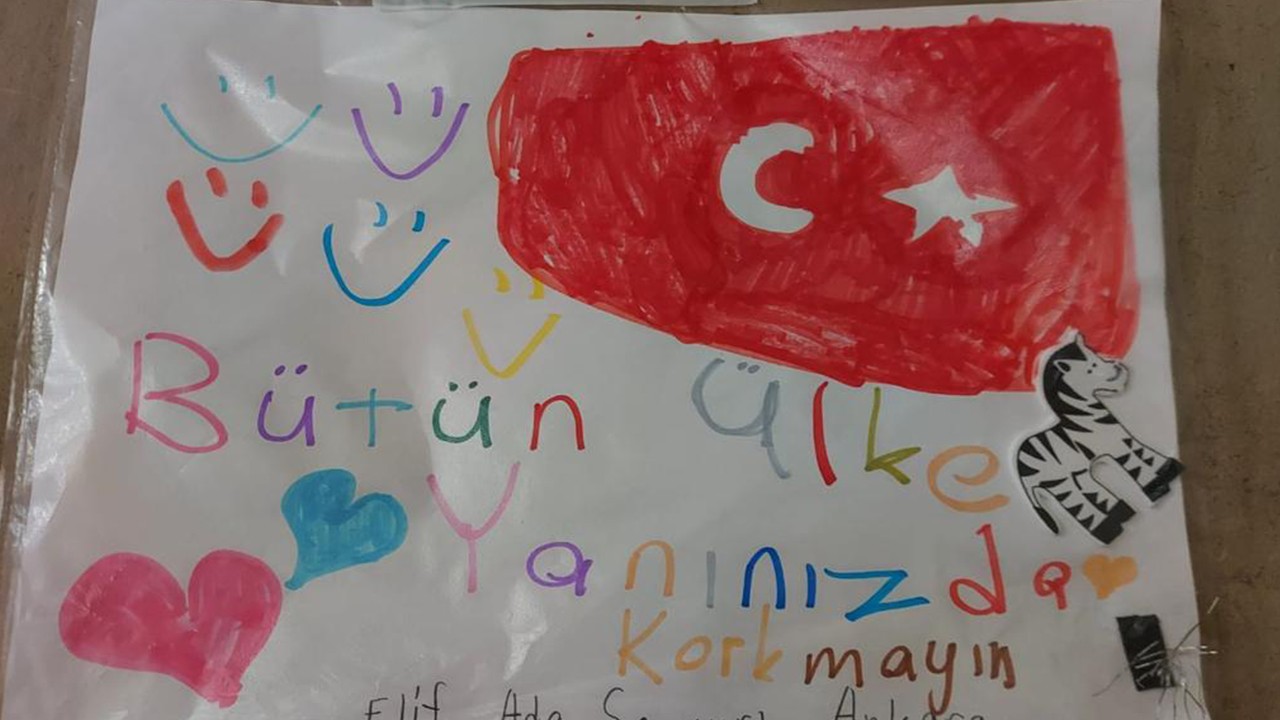 Bütün ülke
Yanınızda
Korkmayın
Elif Ada